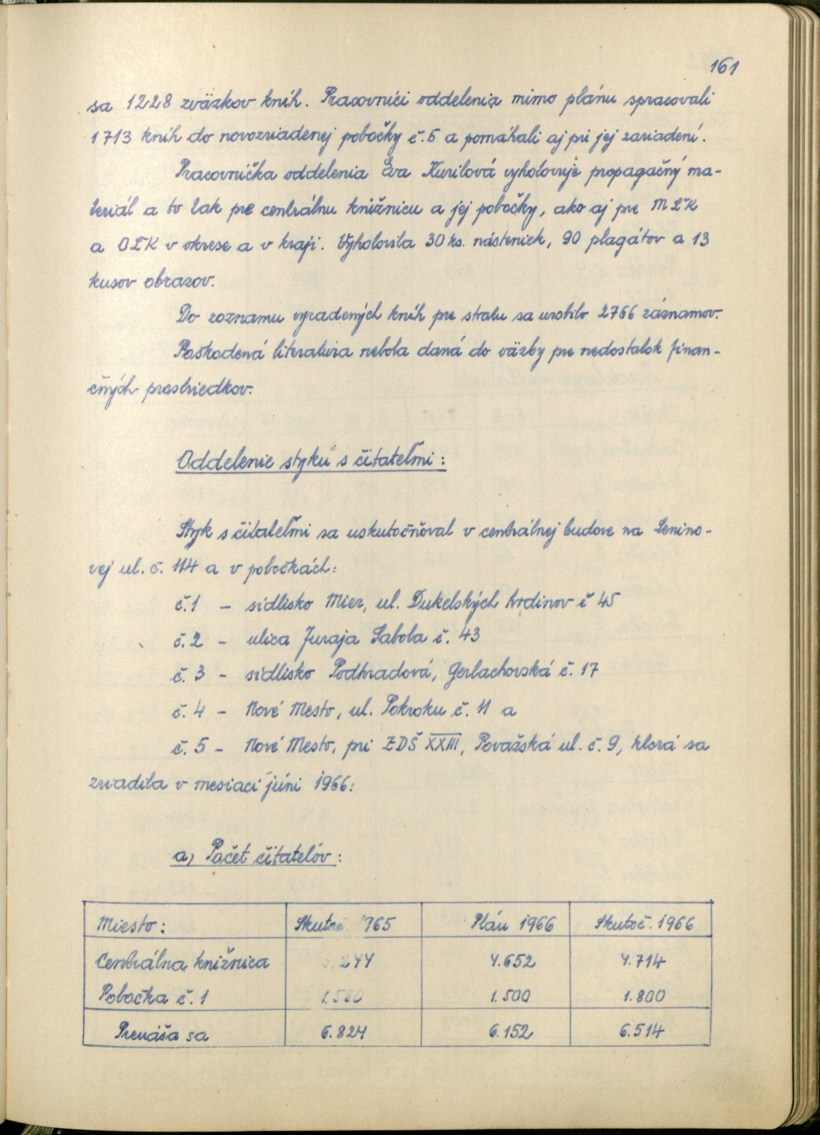 161
sa 1228 zväzkov kníh. Pracovníci oddelenia mimo plánu spracovali
1713 kníh do novozriadenej pobočky č.5 a pomáhali aj pri jej zariadení.
Pracovníčka oddelenia Eva Kurilová vyhotovuje propagačný ma-
teriál a to tak pre centrálnu knižnicu a jej pobočky, ako aj pre MĽK
a OĽK v okrese a v kraji. Vyhotovila 30 ks. násteniek, 90 plagátov a 13
kusov obrazov.
Do zoznamu vyradených kníh pre stratu sa urobilo 2766 záznamov.
Poškodená literatúra nebola daná do väzby pre nedostatok finan-
čných prostriedkov.
Oddelenie styku s čitateľmi:
Styk s čitateľmi sa uskutočňoval v centrálnej budove na Lenino-
vej ul. č. 114 a v pobočkách:
č.1 - sídlisko Mier, ul. Dukelských hrdinov č 45
č.2 - ulica Juraja Sabola č. 43
č. 3 - sídlisko Podhradová, Gerlachovská č. 17
č. 4 - Nové Mesto, ul. Pokroku č. 11 a
č. 5 - Nové Mesto, pri ZDŠ XXIII, Považská ul. č. 9, ktorá sa
zriadila v mesiaci júni 1966:
a) Počet čitateľov:
Miesto: Skutoč. 1965 Plán 1966 Skutoč. 1966
Centrálna knižnica 4.652 4.714
Pobočka č.1 1.580 1.500 1.800
Prenáša sa 6.824 6.152 6.514